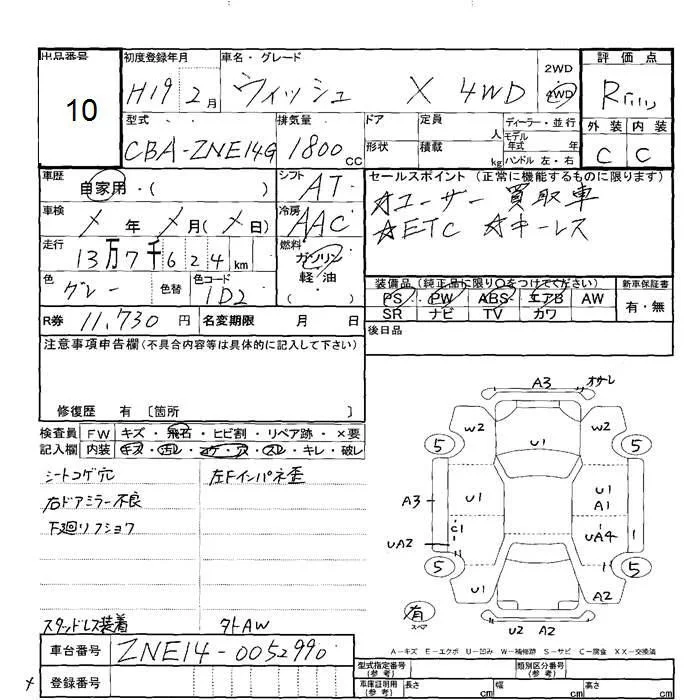 出品番号
10
初度登録年月
H19 2月
車名・グレード
ウィッシュ X 4WD
2WD
4WD
評価点
R
外装 内装
C C
型式
CBA-ZNE14G
排気量
1800cc
ドア
形状
定員 人
積載 kg
ディーラー・並行
モデル年式 年
ハンドル 左・右
車歴
自家用・( )
シフト
AT
車検
× 年 × 月(× 日)
冷房
AAC
走行
13万7千624km
燃料
ガソリン
軽・油
( )
色
グレー
色替
色コード
1D2
R券 11,730円 名変期限 月 日
セールスポイント(正常に機能するものに限ります)
☆ユーザー買取車
☆ETC ☆キーレス
装備品(純正品に限り○をつけてください)
PS PW ABS エアB AW
SR ナビ TV カワ
新車保証書
有・無
後日品
注意事項申告欄(不具合内容等は具体的に記入して下さい)
修復歴 有 〔箇所 〕
検査員記入欄
FW キズ・飛石・ヒビ割・リペア跡・×要
内装 キズ・汚レ・コゲ・ス・スレ・キレ・破レ
シートコゲ穴
左Fインパネ歪
右ドアミラー不良
下廻リフショク
スタッドレス装着
タトAW
A3 オサレ
W2 W2
U1
5 5
A3 U1 U1
A1
C1 UA4
UA2 1
5 5
U1 A2
有
スペア
U2 A2
A-キズ E-エクボ U-凹み W-補修跡 S-サビ C-腐食 XX-交換済
車台番号 ZNE14-0052990
登録番号
型式指定番号(参考)
類別区分番号(参考)
車庫証明用(参考) 長さ cm 幅 cm 高さ cm